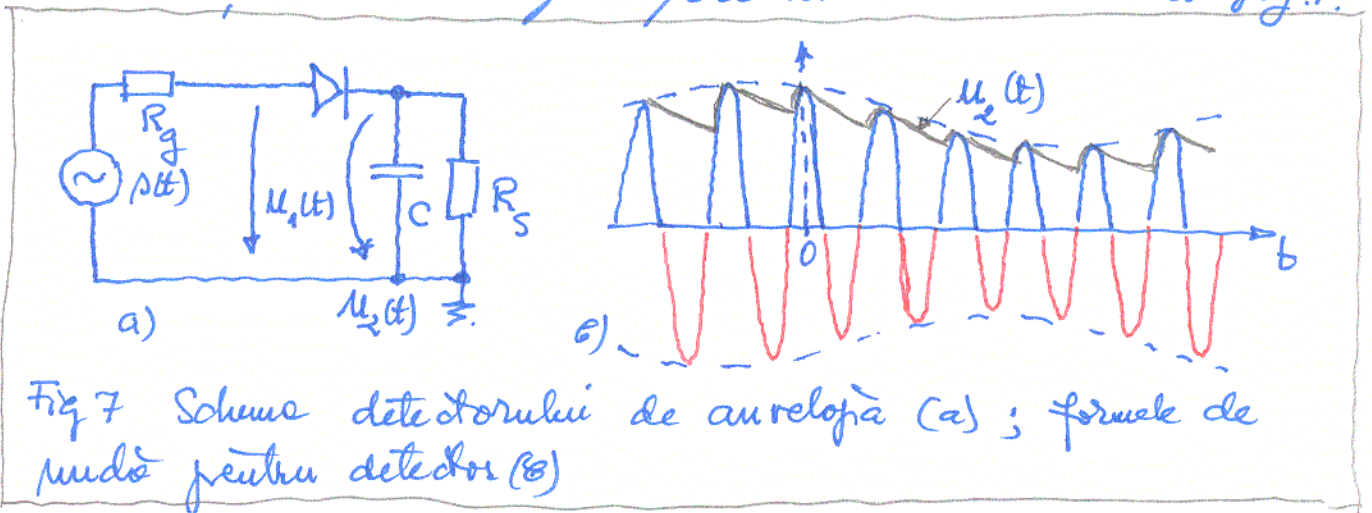 R_g
s(t)
u_1(t)
C
R_S
u_2(t)
a)
u_2(t)
0
t
b)
Fig 7 Schema detectorului de anvelopă (a) ; formele de
undă pentru detector (b)